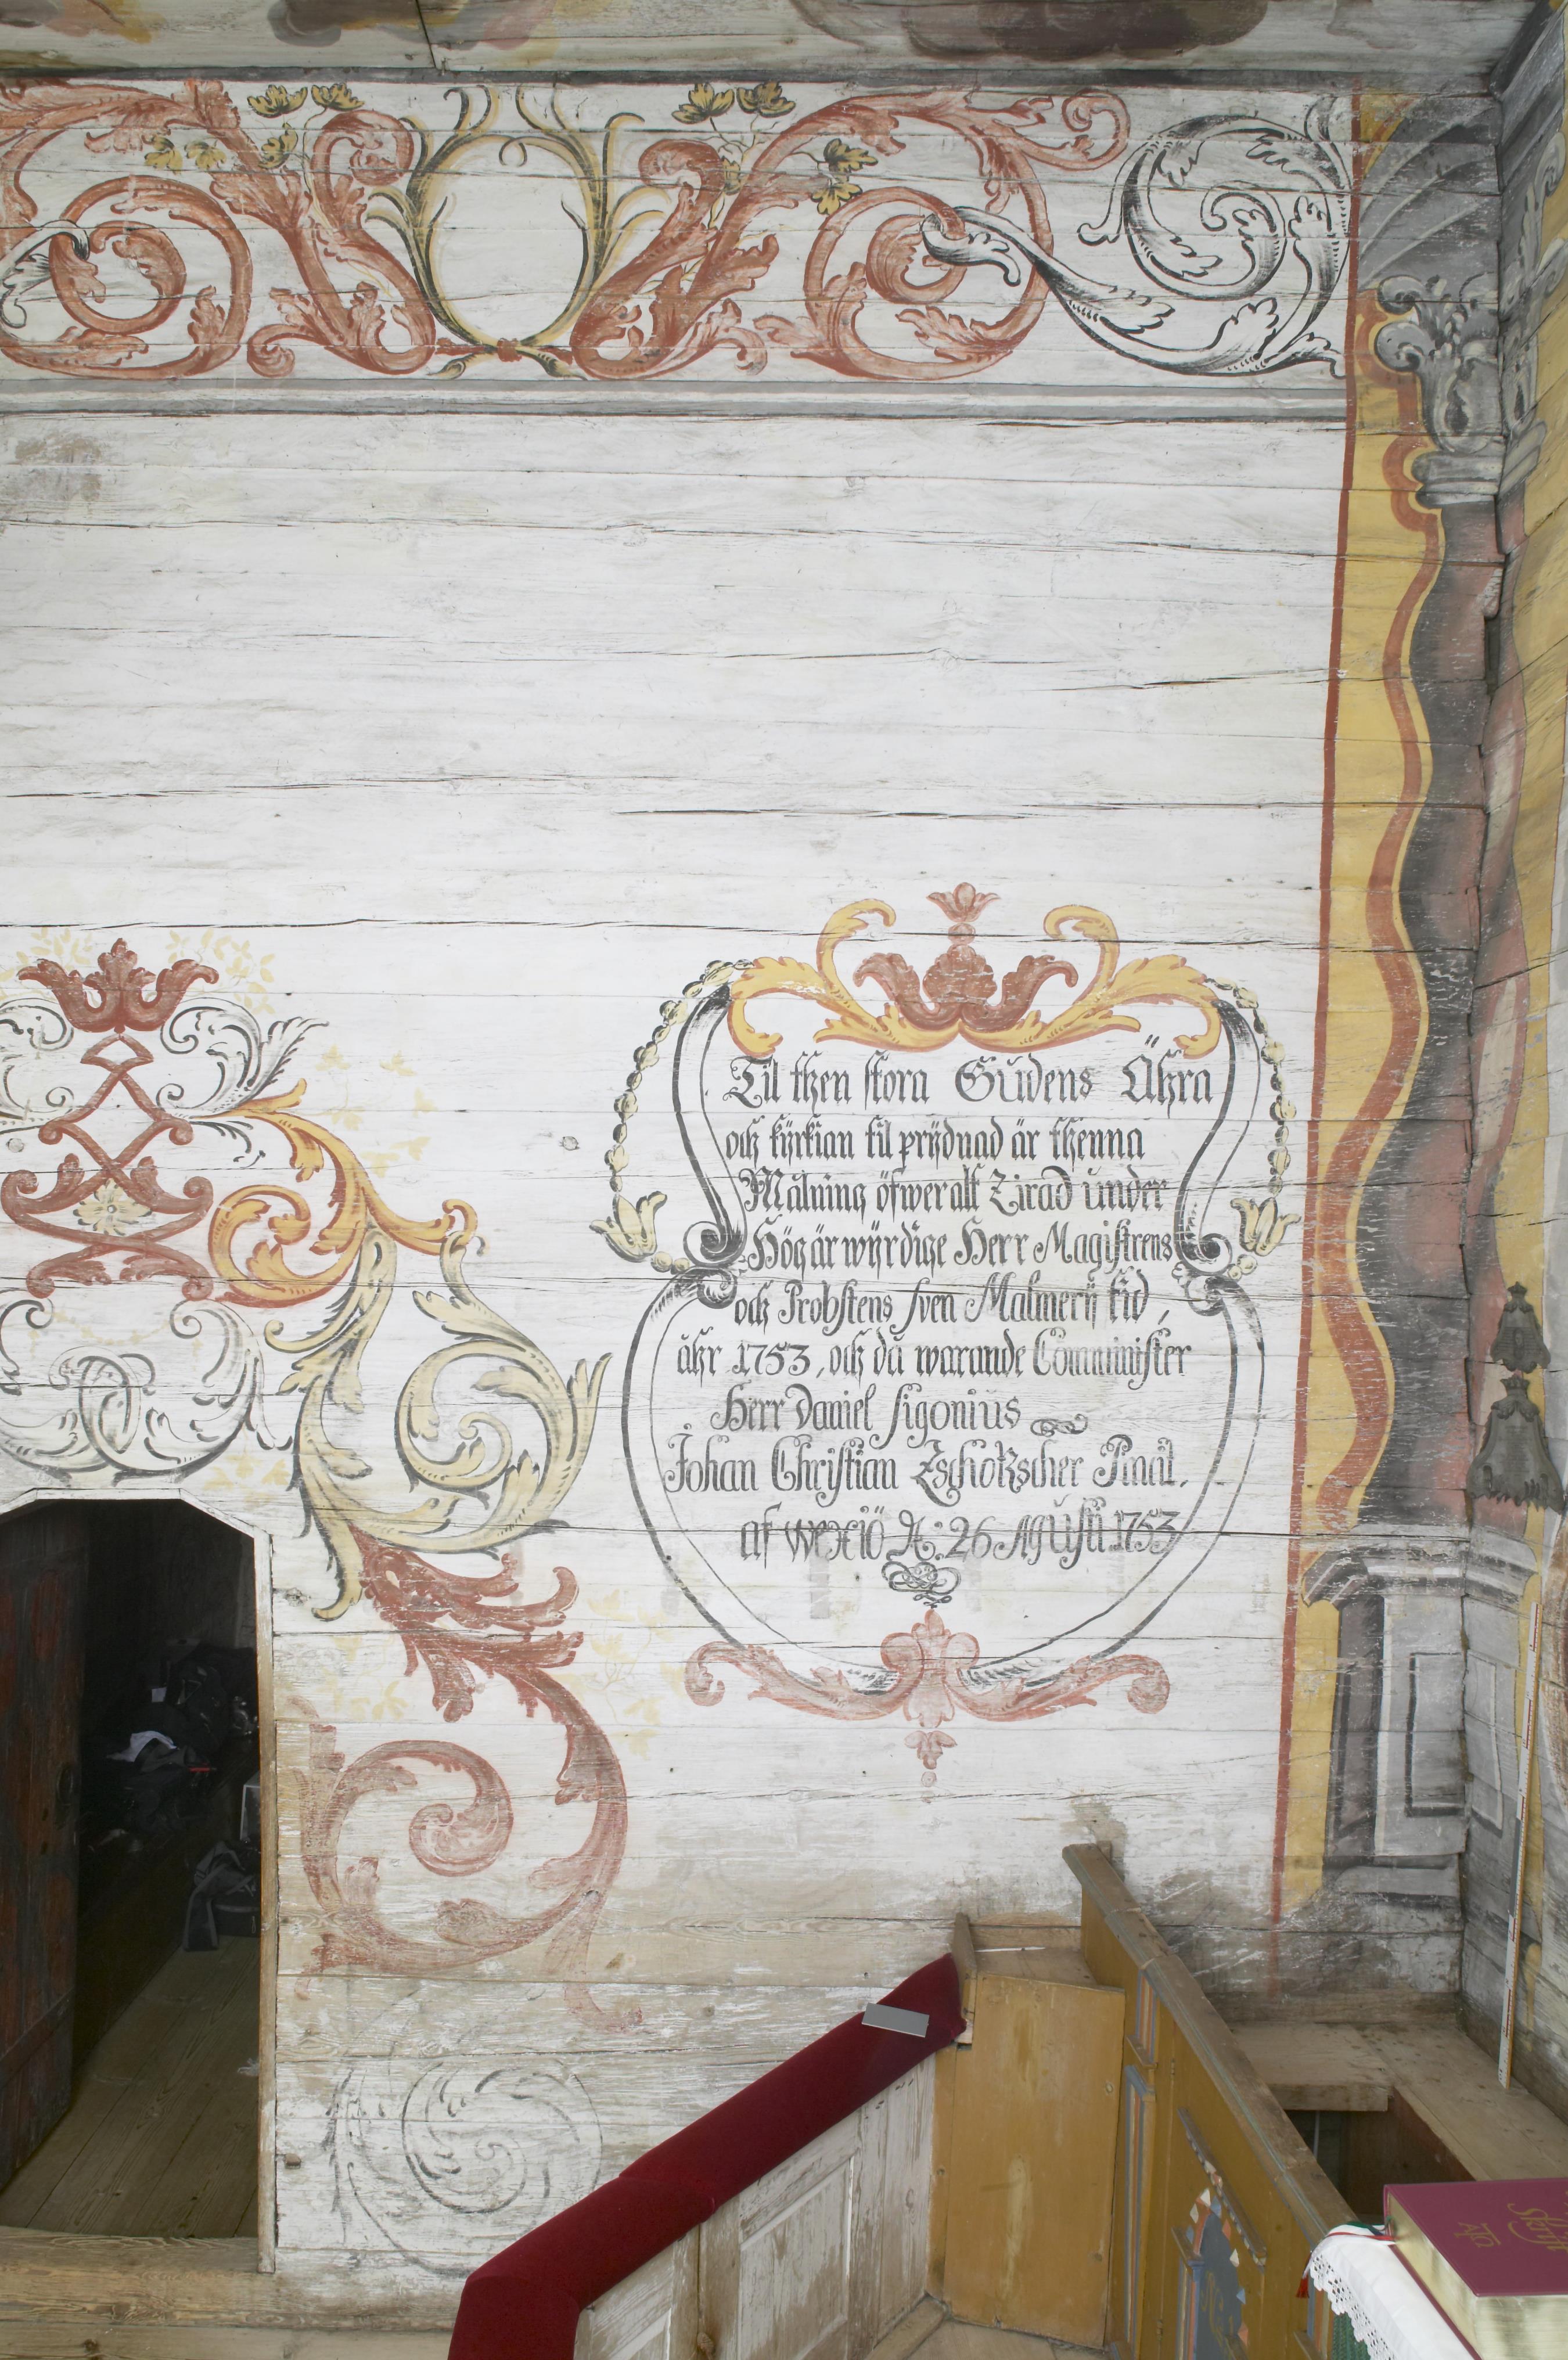 Til then stora Gudens Ähra
och kÿrkian til prÿdnad är thenna
Målning öfwer alt Zirad under
Högärwÿrdige Herr Magistrens
och Probstens Sven Malmerÿ tid,
åhr 1753, och då warande Comminister
Herr Daniel Sigonius
Johan Christian Zschotzscher Pinät.
af Wexiö A: 26 Agusti 1753